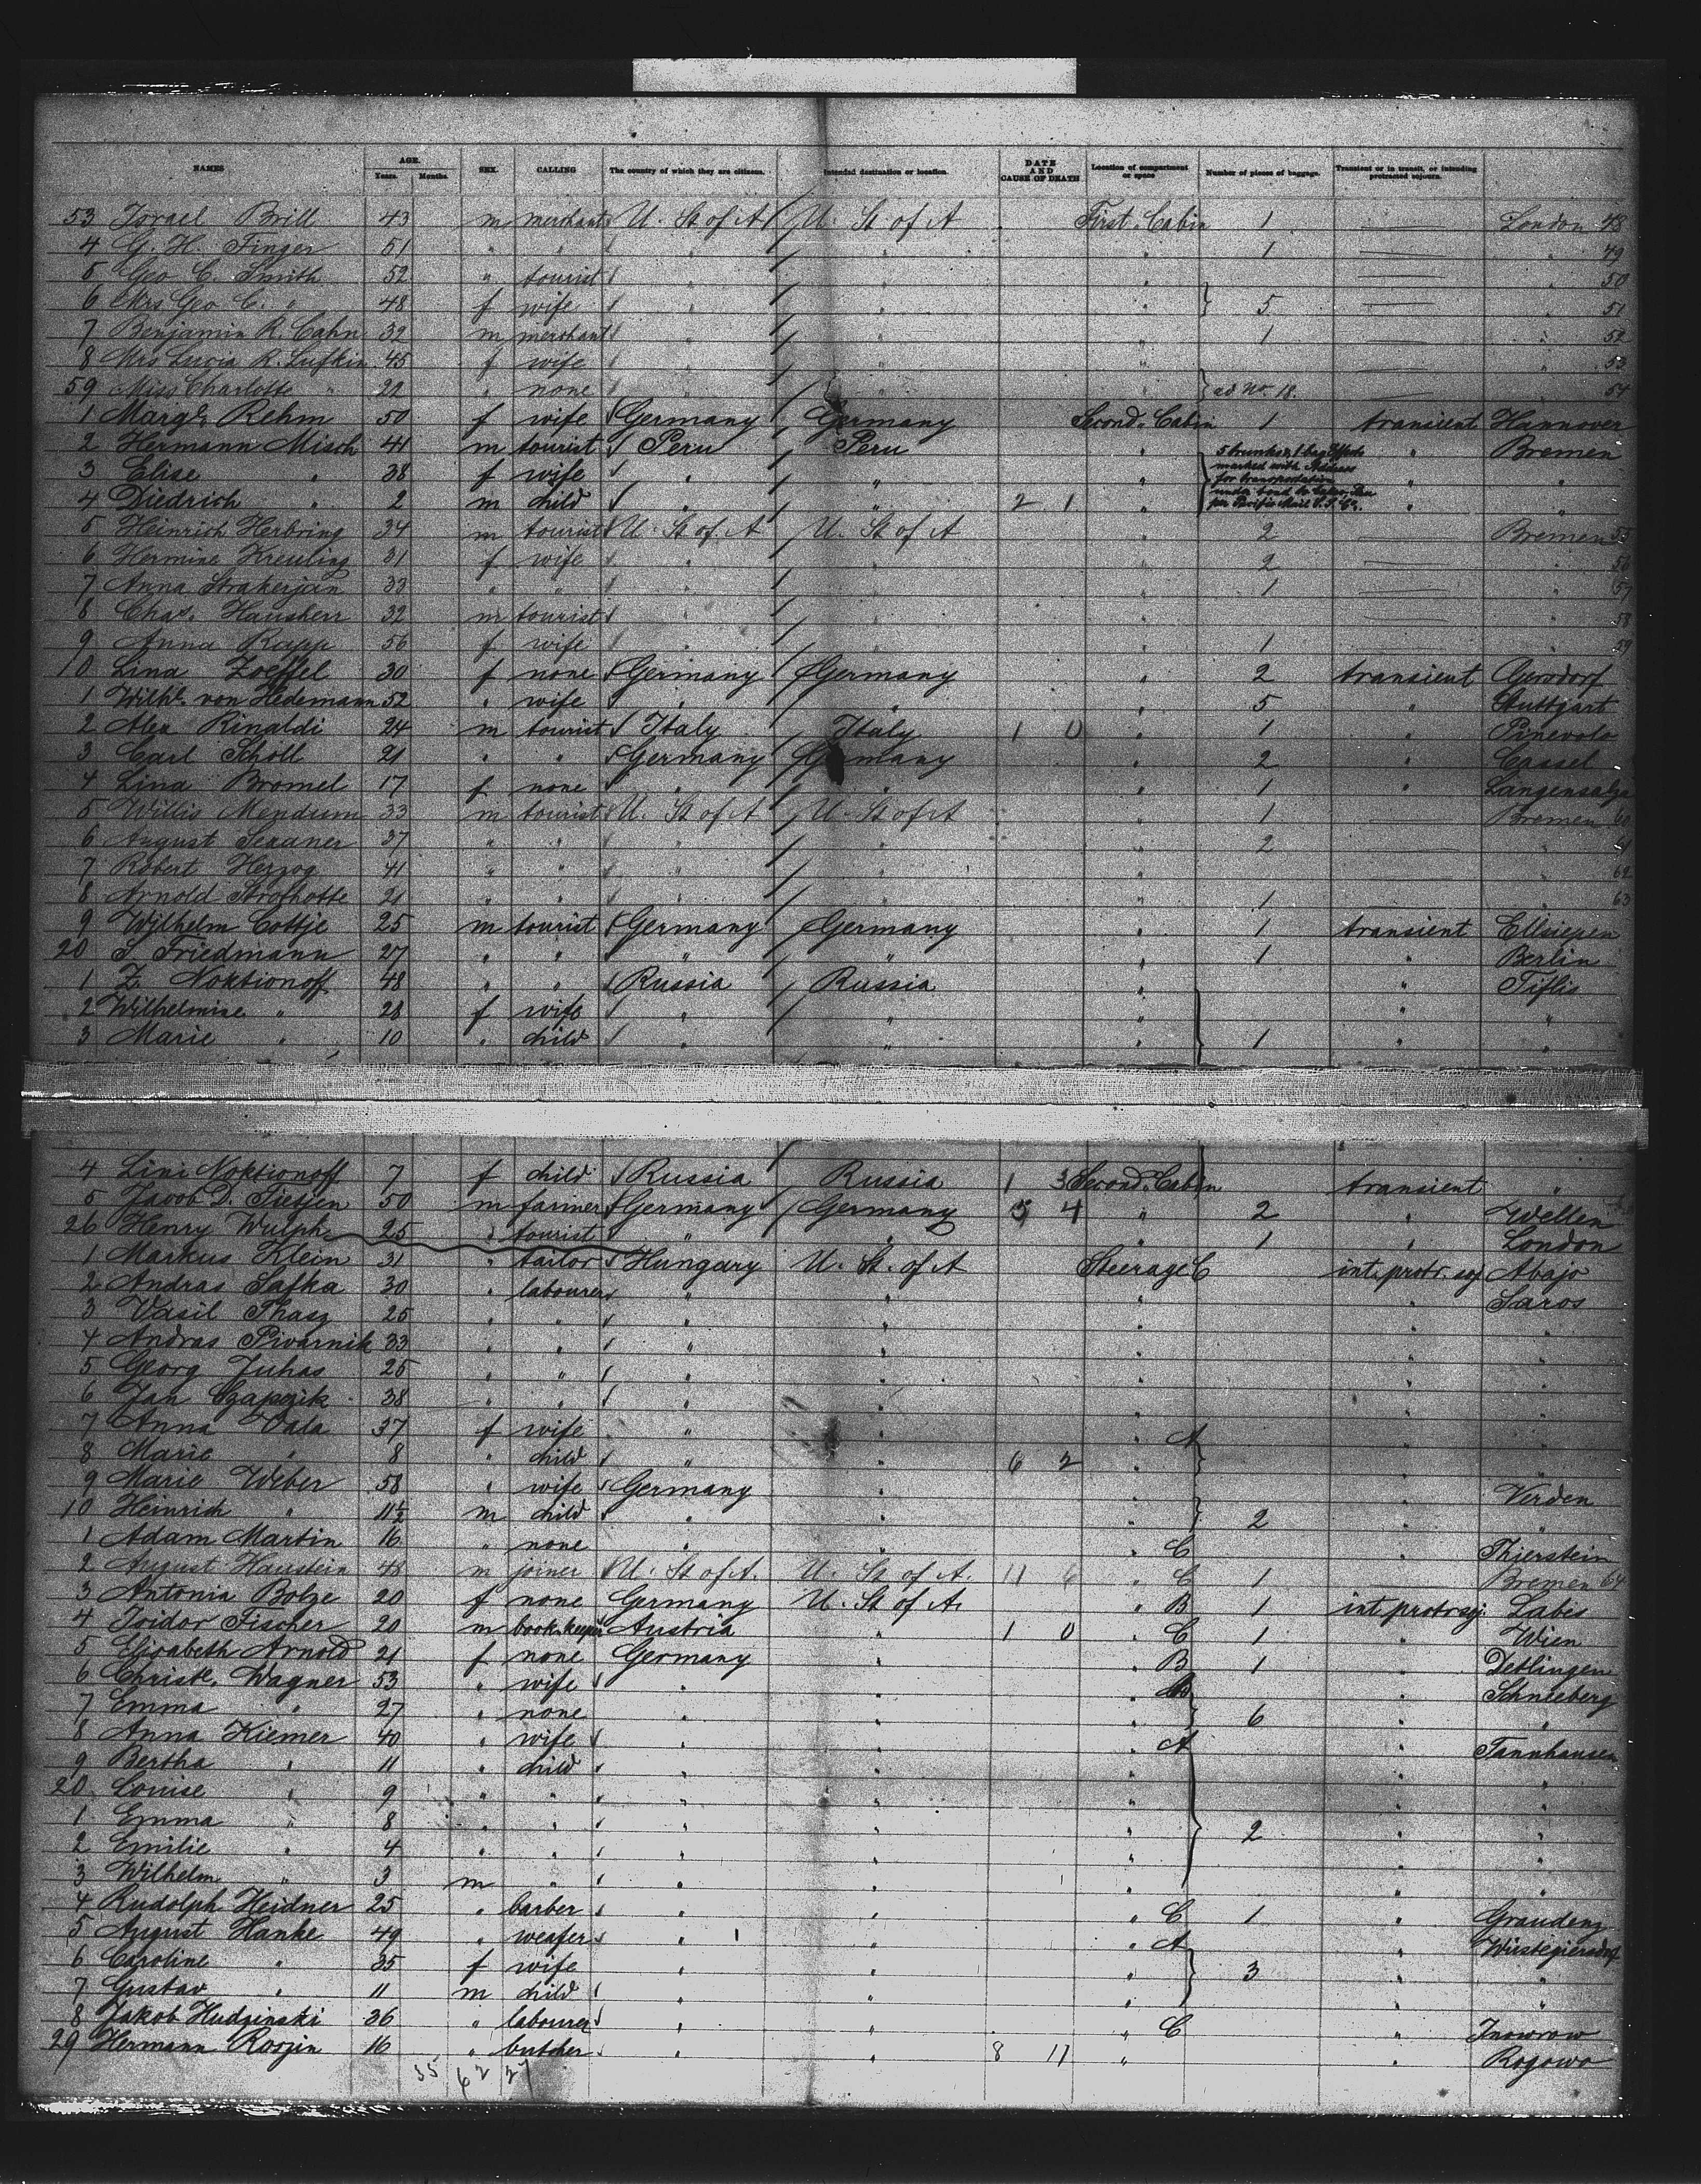 NAMES AGE. Years. Months SEX. CALLING The country of which they are citizens. Intended destination or location. DATE AND CAUSE OF DEATH Location of compartment or space Number of pieces of baggage. Transient or in transit, or intending protracted sojourn.
53 Israel Brill 43 m merchant U. St of A U. St of A First Cabin 1 London 48
4 G. H. Finger 51 " " " " " 1 " 49
5 Geo C. Smith 52 " tourist " " " " 50
6 Mrs Geo C. " 48 f wife " " " 5 " 51
7 Benjamin R. Cahn 32 m merchant " " " 1 " 52
8 Mrs Lucia R. Lufkin 45 f wife " " " " 53
59 Miss Charlotte " 22 " none " " " ad No. 18. " 54
1 Margr. Rehm 50 f wife Germany Germany Second Cabin 1 transient Hannover
2 Hermann Misch 41 m tourist Peru Peru " 5 trunks & 1 bag Effects marked with Address for transportation under bond to per Pacific Mail S. S. Co. " Bremen
3 Elise " 38 f wife " " " " "
4 Diedrich " 2 m child " " 2 1 " " "
5 Heinrich Herbring 34 m tourist U. St of A U. St of A " 2 Bremen 55
6 Hermine Kreuling 31 f wife " " " 2 " 56
7 Anna Strakerjan 33 " " " " " 1 " 57
8 Chas. Hausherr 32 m tourist " " " " 58
9 Anna Rapp 56 f wife " " " 1 " 59
10 Lina Zoeffel 30 f none Germany Germany " 2 transient Gersdorf
1 Wilhe. von Hedemann 52 " wife " " " 5 " Stuttgart
2 Alex Rinaldi 24 m tourist Italy Italy 1 0 " 1 " Pinevolo
3 Carl Scholl 21 " " Germany Germany " 2 " Cassel
4 Lina Bromel 17 f none " " " 1 " Langensalza
5 Willis Mendum 33 m tourist U. St of A U. St of A " 1 Bremen 60
6 August Sexaner 37 " " " " " 2 " 61
7 Robert Herzog 41 " " " " " " 62
8 Arnold Strothotte 21 " " " " " 1 " 63
9 Wilhelm Cottje 25 m tourist Germany Germany " 1 transient
20 S. Friedmann 27 " " " " " 1 " Berlin
1 Z. Noktionoff 48 " " Russia Russia " " Tiflis
2 Wilhelmine " 28 f wife " " " " "
3 Marie " 10 " child " " " 1 " "
4 Line Noktionoff 7 f child Russia Russia 1 3 Second Cabin transient "
5 Jacob D. Tietjen 50 m farmer Germany Germany 5 4 " 2 " Wellen
26 Henry Wulph 25 " tourist " " 1 " London
1 Markus Klein 31 " tailor Hungary U. St. of A Steerage C int. protr. soj. Abajo
2 Andras Safka 30 " labourer " " " " Saros
3 Vasil Thasz 25 " " " " " " "
4 Andras Pivarnik 33 " " " " " " "
5 Georg Juhas 25 " " " " " " "
6 Jan Czapczik 38 " " " " " " "
7 Anna Vala 37 f wife " " " A " "
8 Marie " 8 " child " " 6 2 " " "
9 Marie Weber 58 " wife Germany " " " Verden
10 Heinrich " 11½ m child " " " 2 " "
1 Adam Martin 16 " none " " " C " Thierstein
2 August Haustein 48 m joiner U. St of A. U. St of A. 11 6 " C 1 Bremen 64
3 Antonia Bolze 20 f none Germany U. St of A. " B 1 int protr soj. Labes
4 Isidor Fischer 20 m bookkeeper Austria " 1 0 " C 1 " Wien
5 Elisabeth Arnold 21 f none Germany " " B 1 " Detlingen
6 Christe. Wagner 53 " wife " " " B " Schneeberg
7 Emma " 27 " none " " " 6 " "
8 Anna Kiemer 40 " wife " " " A " Tannhausen
9 Bertha " 11 " child " " " " "
20 Louise " 9 " " " " " " "
1 Emma " 8 " " " " " 2 " "
2 Emilie " 4 " " " " " " "
3 Wilhelm " 3 m " " " " " "
4 Rudolph Heidner 25 " barber " " " C 1 " Graudenz
5 August Hanke 49 " weafer " " " A " Wüstegiersdorf
6 Caroline " 35 f wife " " " 3 " "
7 Gustav " 11 m child " " " " "
8 Jakob Hudzinski 36 " labourer " " " C " Inowrow
29 Hermann Roszin 16 " butcher " " 8 11 " " Rogowo
35 62 27